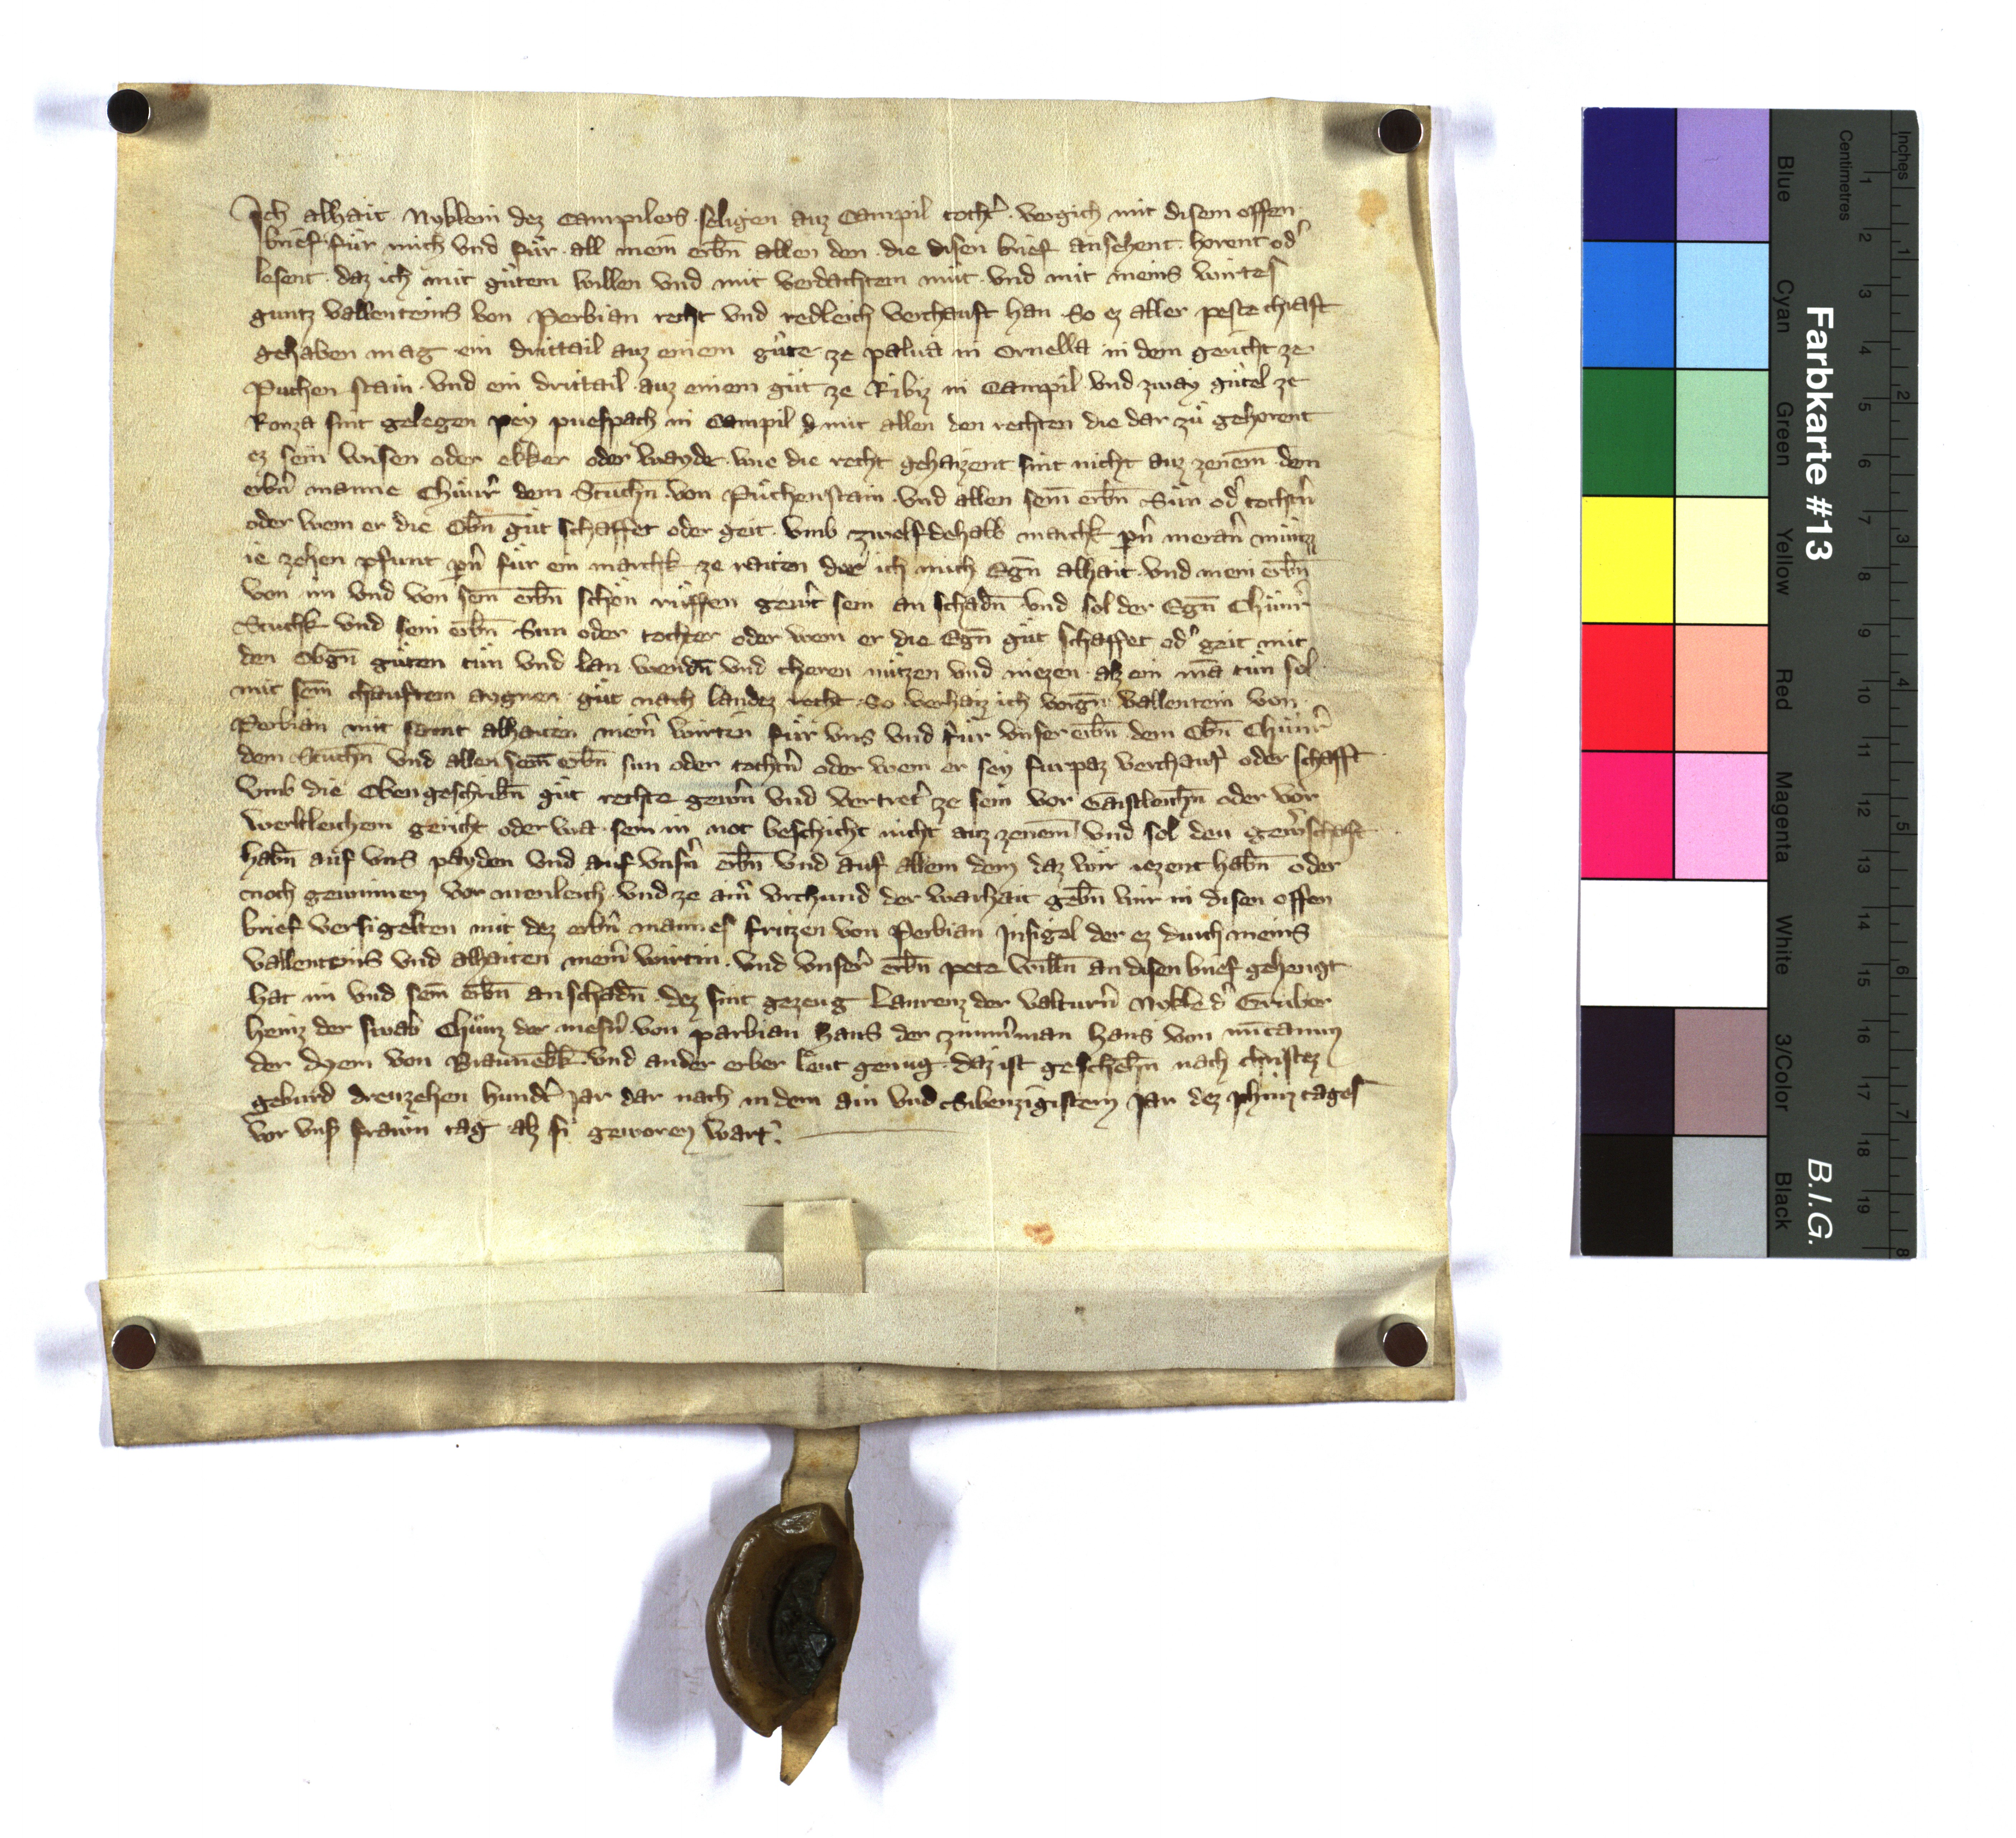 Ich alhait Nyklein dez Campilers seligen auz Campil tocht̉ vergich mit disem offen
brief für mich vnd für all mein erb̄n allen den die disen brief ansehent horent od̉
lesent daz ich mit gůtem willen vnd mit verdachtem můt vnd mit meins wirtes
guntz vallenteins von Perbian recht vnd redleich verchauft han So ez aller peste chraft
gehaben mag ein drittail auz einem gůte ze palua in Ornella in dem gericht ze
Puchen stain vnd ein drittail auz einem gůt ze Ribiz in Campil vnd zway gůtel ze
Ronza sint gelegen pey puespach in Campil mit allen den rechten die dar zů gehorent
ez sein wisen oder ekker oder wayde wie die recht gehaizent sint nicht auz zenem̄ dem
erb̉n manne Chůnr̉ dem Stuch̄n von Půchenstain vnd allen sein̄ erb̄n Sůn od̉ tocht̉n
oder wem er die Ob̄n gůt schaffet oder geit vmb zwelfdehalb marchk p̉n meran̉ můntz
ie zehen pfunt p̉n für ein marchk ze raiten der ich mich Eḡn alhait vnd mein erb̄n
von im vnd von sein̄ erb̄n schon růffen gew̉t sein an schad̄n vnd sol der Eḡn Chůnr̉
Stuchk vnd sein erb̄n Sun oder tochter oder wem er die Eḡn gůt schaffet od̉ geit mit
den Obḡn gůten tůn vnd lan wend̄n vnd cheren nützen vnd niezen alz ein mā tůn sol
mit seim̄ chauftem aygner gůt nach landez recht So verhaiz ich vorḡn vallentein von
Perbian mit samt alhaiten mein̉ wirten für vns vnd für vnser erb̄n dem Ob̄n Chůnr̉
dem Stuch̄n vnd allen sein̄ erb̄n sun oder tocht̉n oder wem er sey furpaz verchauf̉ oder schafft
vmb die Oben geschrib̄n gůt rechte gew̉n vnd vertret̉ ze sein vor Gaistleich̄n oder vor
werltleichem gericht oder wa sein in not beschicht nicht auz zenem̄ vnd sol den gew̉schafft
hab̄n auf vns payden vnd auf vns̉n erb̄n vnd auf allem dem daz wir iezent hab̄n oder
noch gewinnen vor menleich vnd ze ain̉ vrchund der warhait geb̄n wir in disen offen
brief versigelten mit dez erb̉n mannes fritzen von Perbian Insigel der ez durch meins
vallenteins vnd alhaiten mein̉ wirtin vnd vnser̉ erb̄n pete will̄n an disen brief gehengt
hat im vnd sein̄ erb̄n an schad̄n dez sint gezeug Laurenz der valturn̉ Nykle d̉ Gruber
heinz der swab Chůnz der mesn̉ von parbian hans der zimm̉man hans von
der dyem von Braunekk vnd ander erber lёut genug daz ist gescheh̄n nach christez
geburd dreuzehen hund̉t Jar dar nach in dem ain vnd Sibenzigistem Jar dez phinz tages
vor vns̉ frawn tag alz si geworen wart
Farbkarte #13
B.I.G.
Inches
Centimetres
1 2 3 4 5 6 7 8 9 10 11 12 13 14 15 16 17 18 19
1 2 3 4 5 6 7 8
Blue
Cyan
Green
Yellow
Red
Magenta
White
3/Color
Black